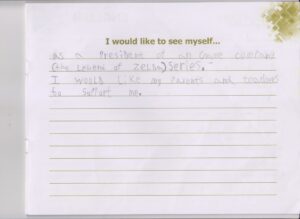 I would like to see myself...
as a President of an Game company
(the Legend of Zelda) Series.
I would like my Parents and teachers
to support me.